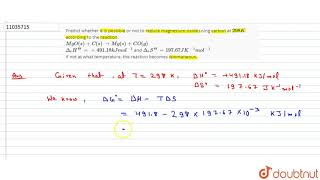 11035715
Predict whether it is possible or not to reduce magnesium oxide using carbon at 298 K
according to the reaction.
MgO(s) + C(s) → Mg(s) + CO(g)
ΔrH⊖ = +491.18kJmol⁻¹ and ΔrS⊖ = 197.67JK⁻¹mol⁻¹
If not at what temperature, the reaction becomes spontaneous.
Ans. Given that, at T = 298 K, ΔH° = +491.18 KJ/mol
ΔS° = 197.67 J K⁻¹ mol⁻¹
We know, ΔG° = ΔH - TΔS
= 491.8 - 298 × 197.67 × 10⁻³ KJ/mol
doubtnut